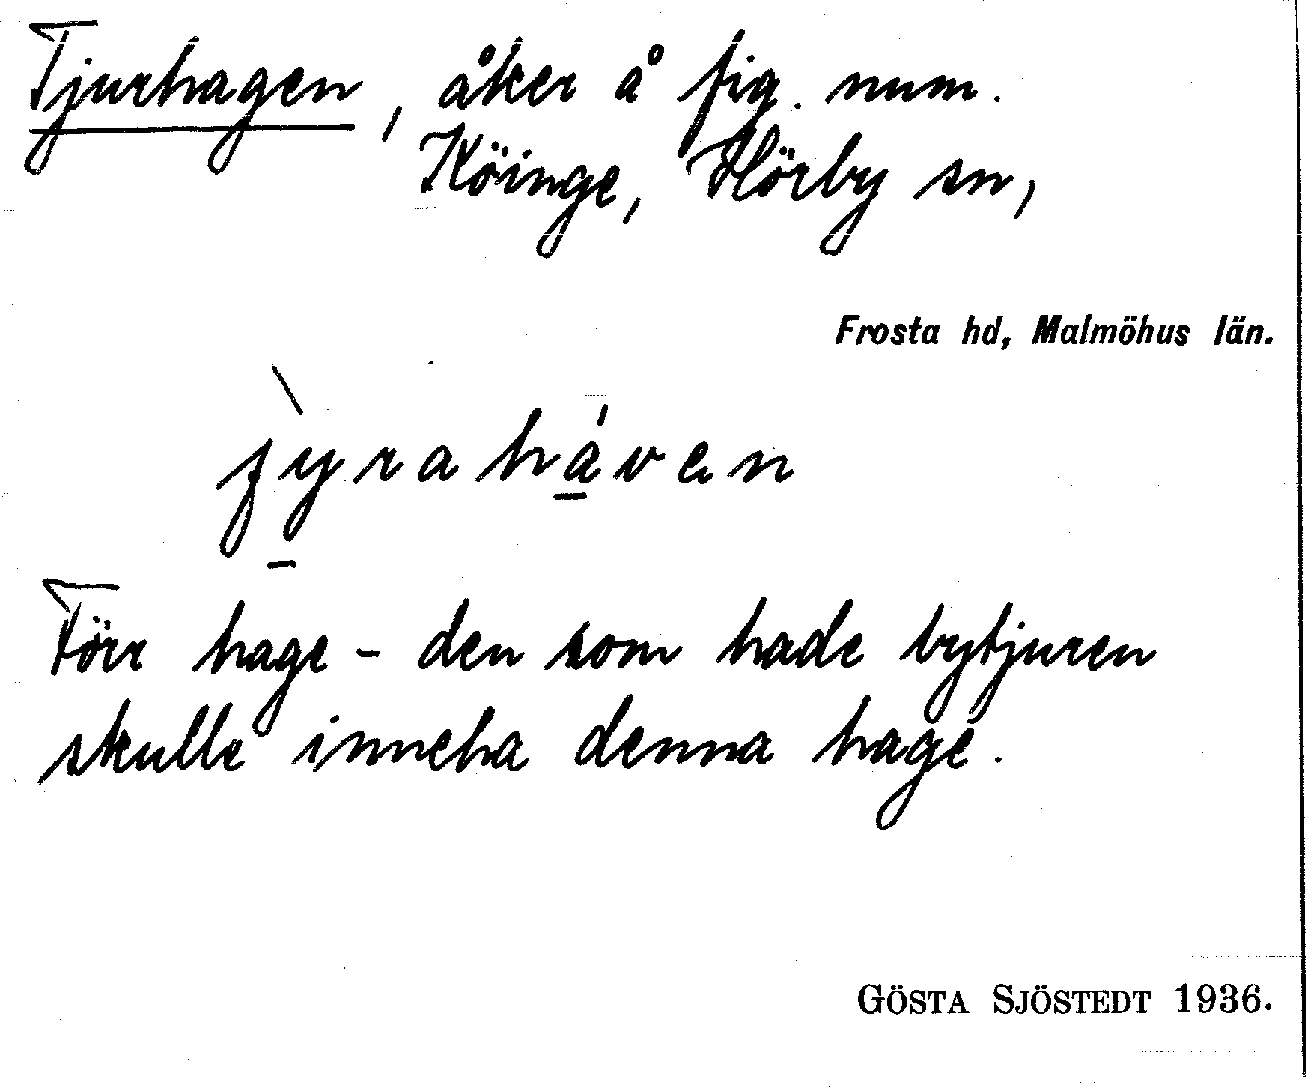 Tjurhagen, åker å fig. num.
Köinge, Hörby sn,
Frosta hd, Malmöhus län.
jyrahaven
Förr hage - den som hade bytjuren
skulle inneha denna hage.
GÖSTA SJÖSTEDT 1936.